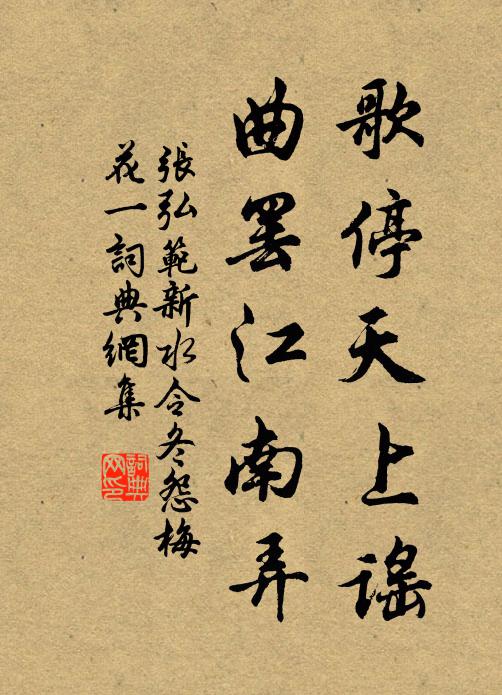 歌停天上謠
曲罷江南弄
張弘範新水令冬怨梅
花一詞典網集
詞典
网印